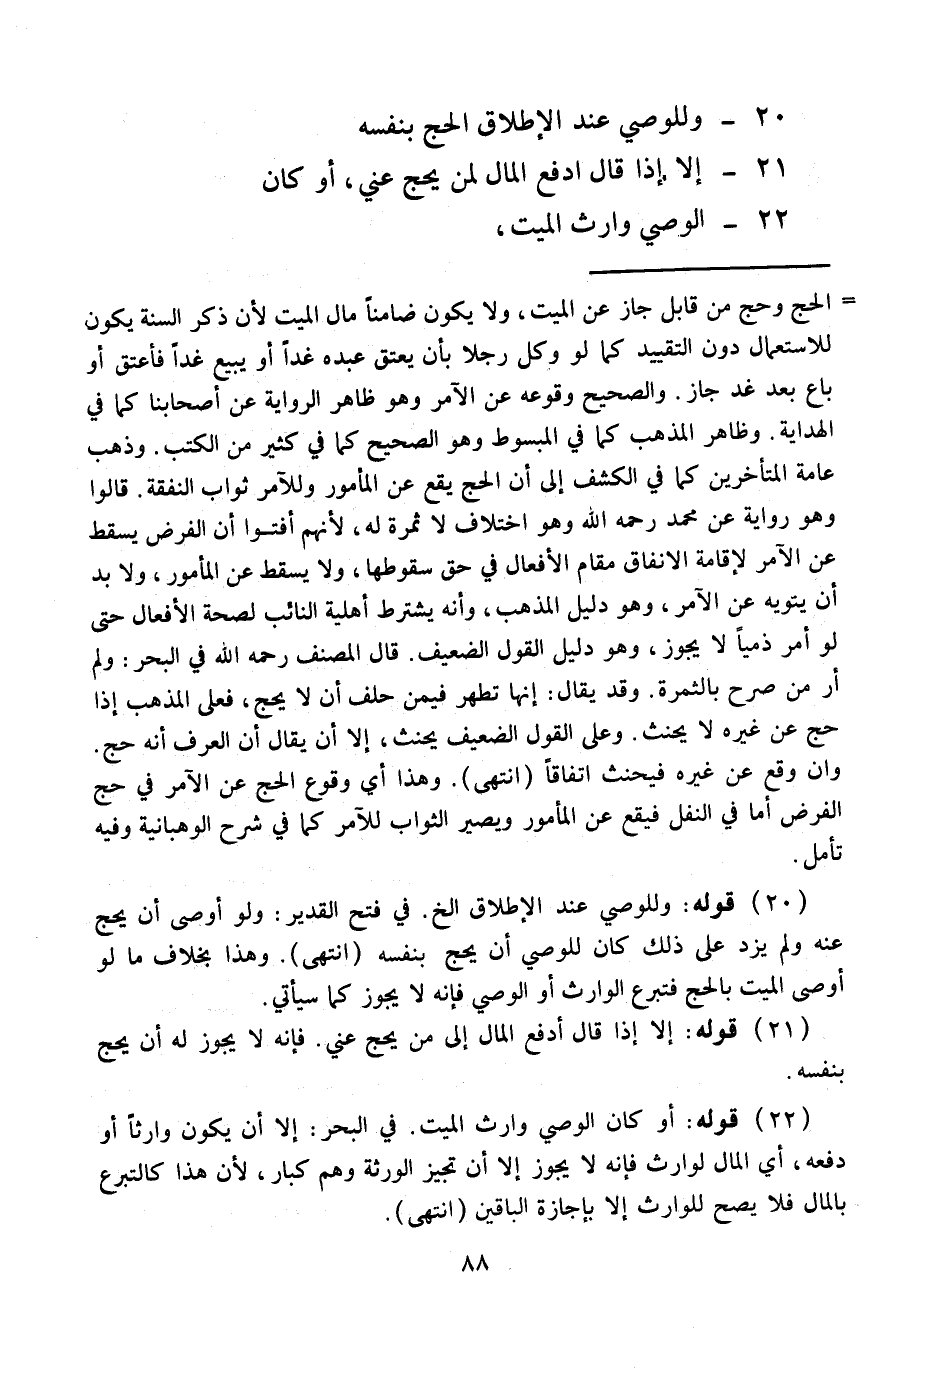 ٢٠ – وللوصي عند الإطلاق الحج بنفسه
٢١ – إلا إذا قال ادفع المال لمن يحج عني، أو كان
٢٢ – الوصي وارث الميت،
= الحج وحج من قابل جاز عن الميت، ولا يكون ضامناً مال الميت لأن ذكر السنة يكون
للاستعمال دون التقييد كما لو وكل رجلا بأن يعتق عبده غداً أو يبيع غداً فأعتق أو
باع بعد غد جاز. والصحيح وقوعه عن الآمر وهو ظاهر الرواية عن أصحابنا كما في
الهداية. وظاهر المذهب كما في المبسوط وهو الصحيح كما في كثير من الكتب. وذهب
عامة المتأخرين كما في الكشف إلى أن الحج يقع عن المأمور وللآمر ثواب النفقة. قالوا
وهو رواية عن محمد رحمه الله وهو اختلاف لا ثمرة له، لأنهم أفتـوا أن الفرض يسقط
عن الآمر لإقامة الانفاق مقام الأفعال في حق سقوطها، ولا يسقط عن المأمور، ولا بد
أن ينويه عن الآمر، وهو دليل المذهب، وأنه يشترط أهلية النائب لصحة الأفعال حتى
لو أمر ذمياً لا يجوز، وهو دليل القول الضعيف. قال المصنف رحمه الله في البحر: ولم
أر من صرح بالثمرة. وقد يقال: إنها تظهر فيمن حلف أن لا يحج، فعلى المذهب إذا
حج عن غيره لا يحنث. وعلى القول الضعيف يحنث، إلا أن يقال أن العرف أنه حج.
وان وقع عن غيره فيحنث اتفاقاً (انتهى). وهذا أي وقوع الحج عن الآمر في حج
الفرض أما في النفل فيقع عن المأمور ويصير الثواب للآمر كما في شرح الوهبانية وفيه
تأمل.
(٢٠) قوله: وللوصي عند الإطلاق الخ. في فتح القدير: ولو أوصى أن يحج
عنه ولم يزد على ذلك كان للوصي أن يحج بنفسه (انتهى). وهذا بخلاف ما لو
أوصى الميت بالحج فتبرع الوارث أو الوصي فإنه لا يجوز كما سيأتي.
(٢١) قوله: إلا إذا قال أدفع المال إلى من يحج عني. فإنه لا يجوز له أن يحج
بنفسه.
(٢٢) قوله: أو كان الوصي وارث الميت. في البحر: إلا أن يكون وارثاً أو
دفعه، أي المال لوارث فإنه لا يجوز إلا أن تجيز الورثة وهم كبار، لأن هذا كالتبرع
بالمال فلا يصح للوارث إلا بإجازة الباقين (انتهى).
٨٨